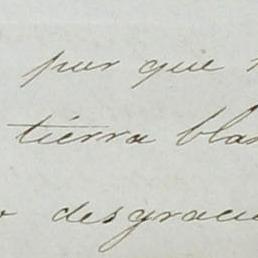 por que
tiérra blan
desgracia